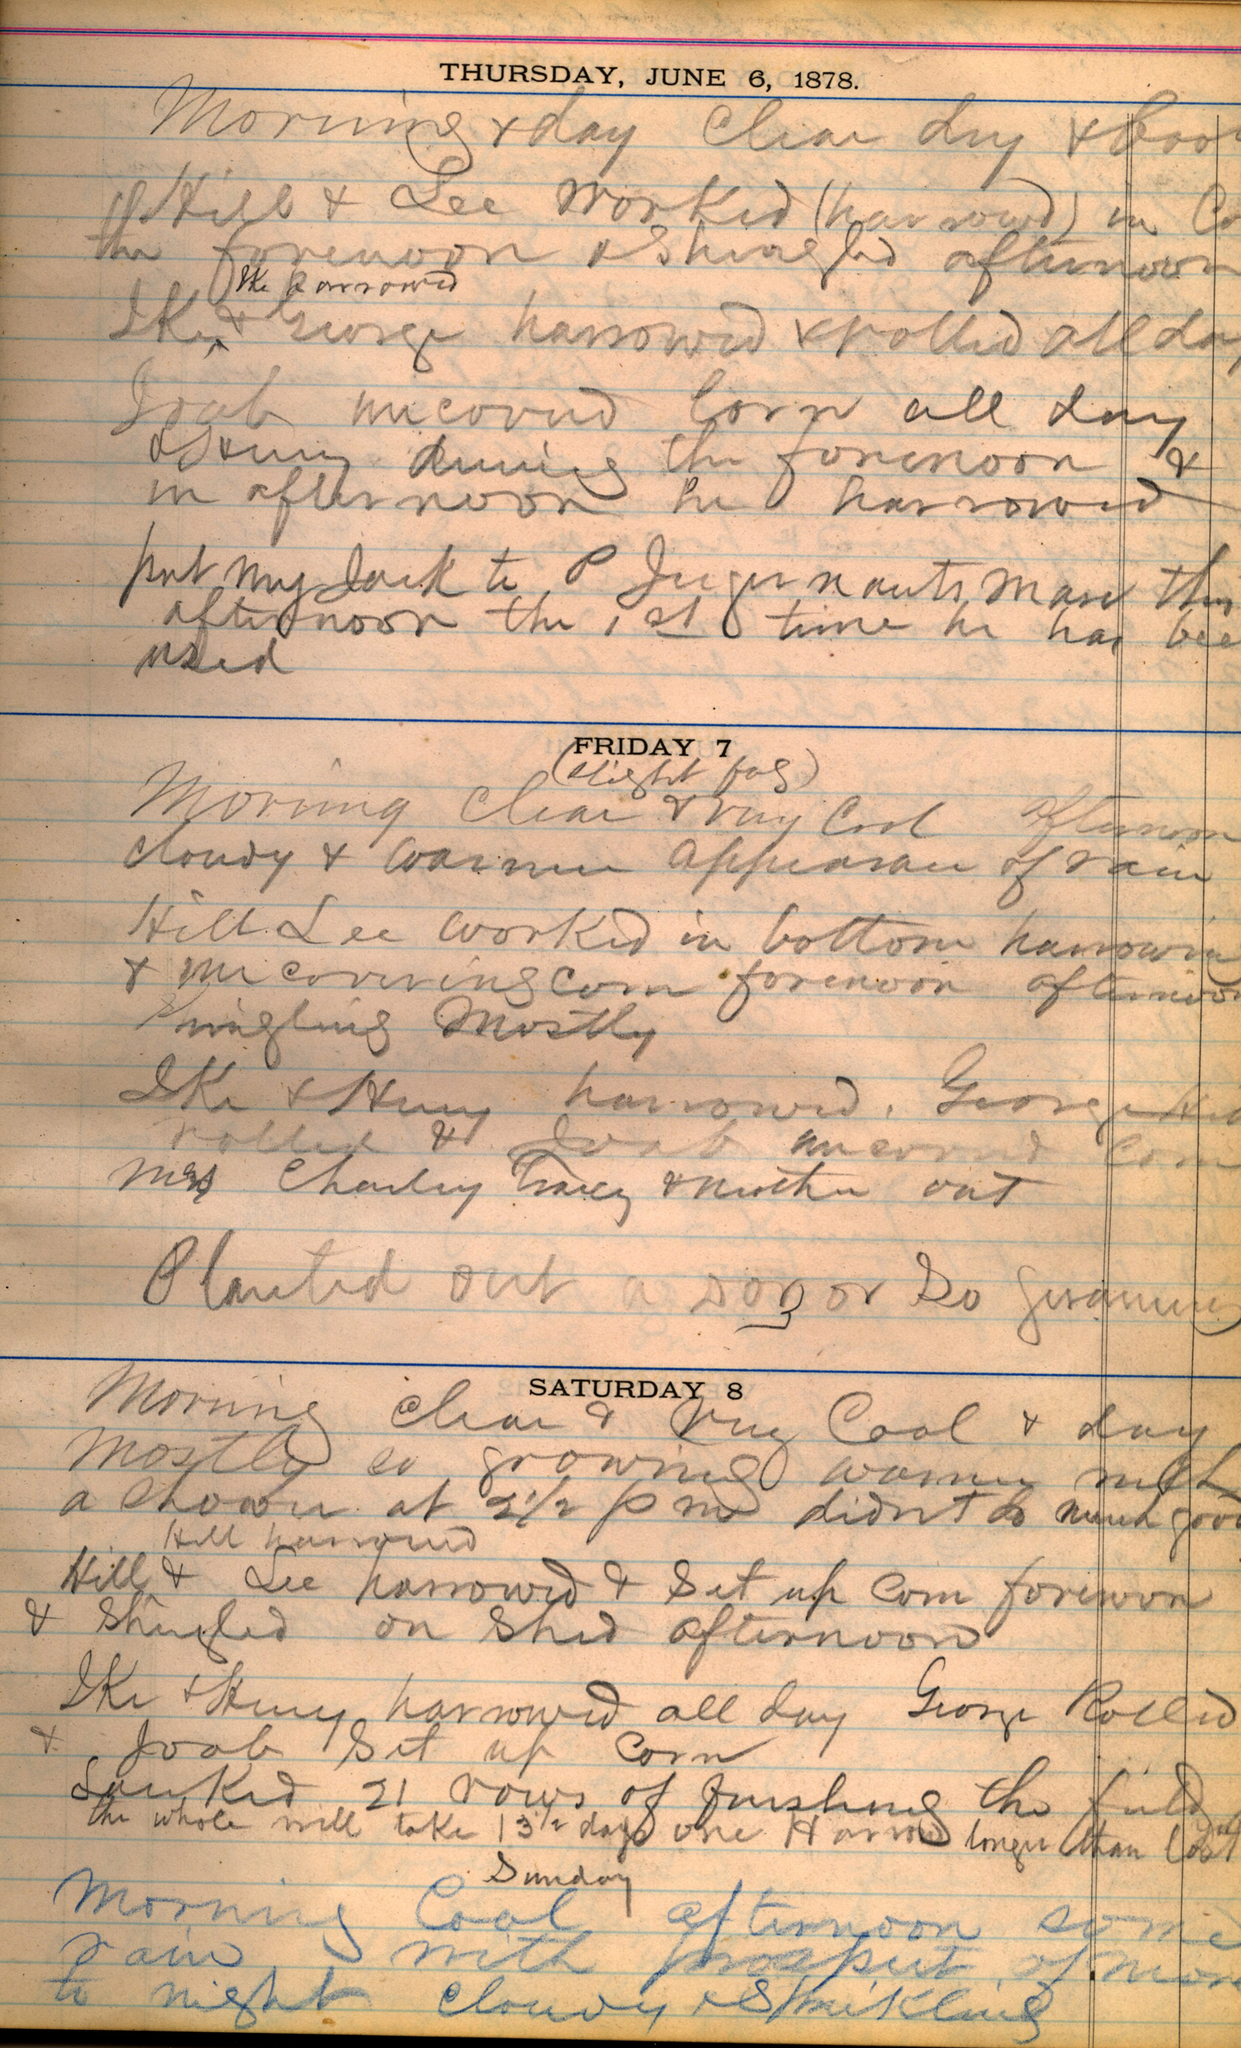 THURSDAY, JUNE 6, 1878.
Morning & day Clear dry & Cool
Hill & Lee worked (harrowd) in Co
the forenoon & Shingled afternoon
Ike harrowed
Ike & George harrowed & rolled all day
Joab uncoverd Corn all day
& Henry during the forenoon &
in afternoon he harrowed
put my Jack to P mare this
afternoon the 1st time he has bee
used
FRIDAY 7
(slight fog)
Morning Clear & very Cool afternoon
cloudy & warmer appearance of rain
Hill Lee worked in bottom harrowing
& uncovering corn forenoon afternoon
Shingling Mostly
Ike & Henry harrowed. George
rolled & Joab uncoverd Corn
Mrs Charley Tracy & mother out
Planted out a doz or so geraniums
SATURDAY 8
Morning Clear & very Cool & day
mostly so growing warmer with
a shower at 2 1/2 pm didnt do much good
Hill harrowed
Hill & Lee harrowed & Set up Corn forenoon
& Shingled on Shed afternoon
Ike & Henry harrowed all day George Rolled
& Joab Set up Corn
Lacked 21 rows of finishing the field
the whole will take 13 1/2 days one Harrow longer than last
Sunday
Morning Cool afternoon some
rain with prospect of more
to night cloudy & Sprinkling